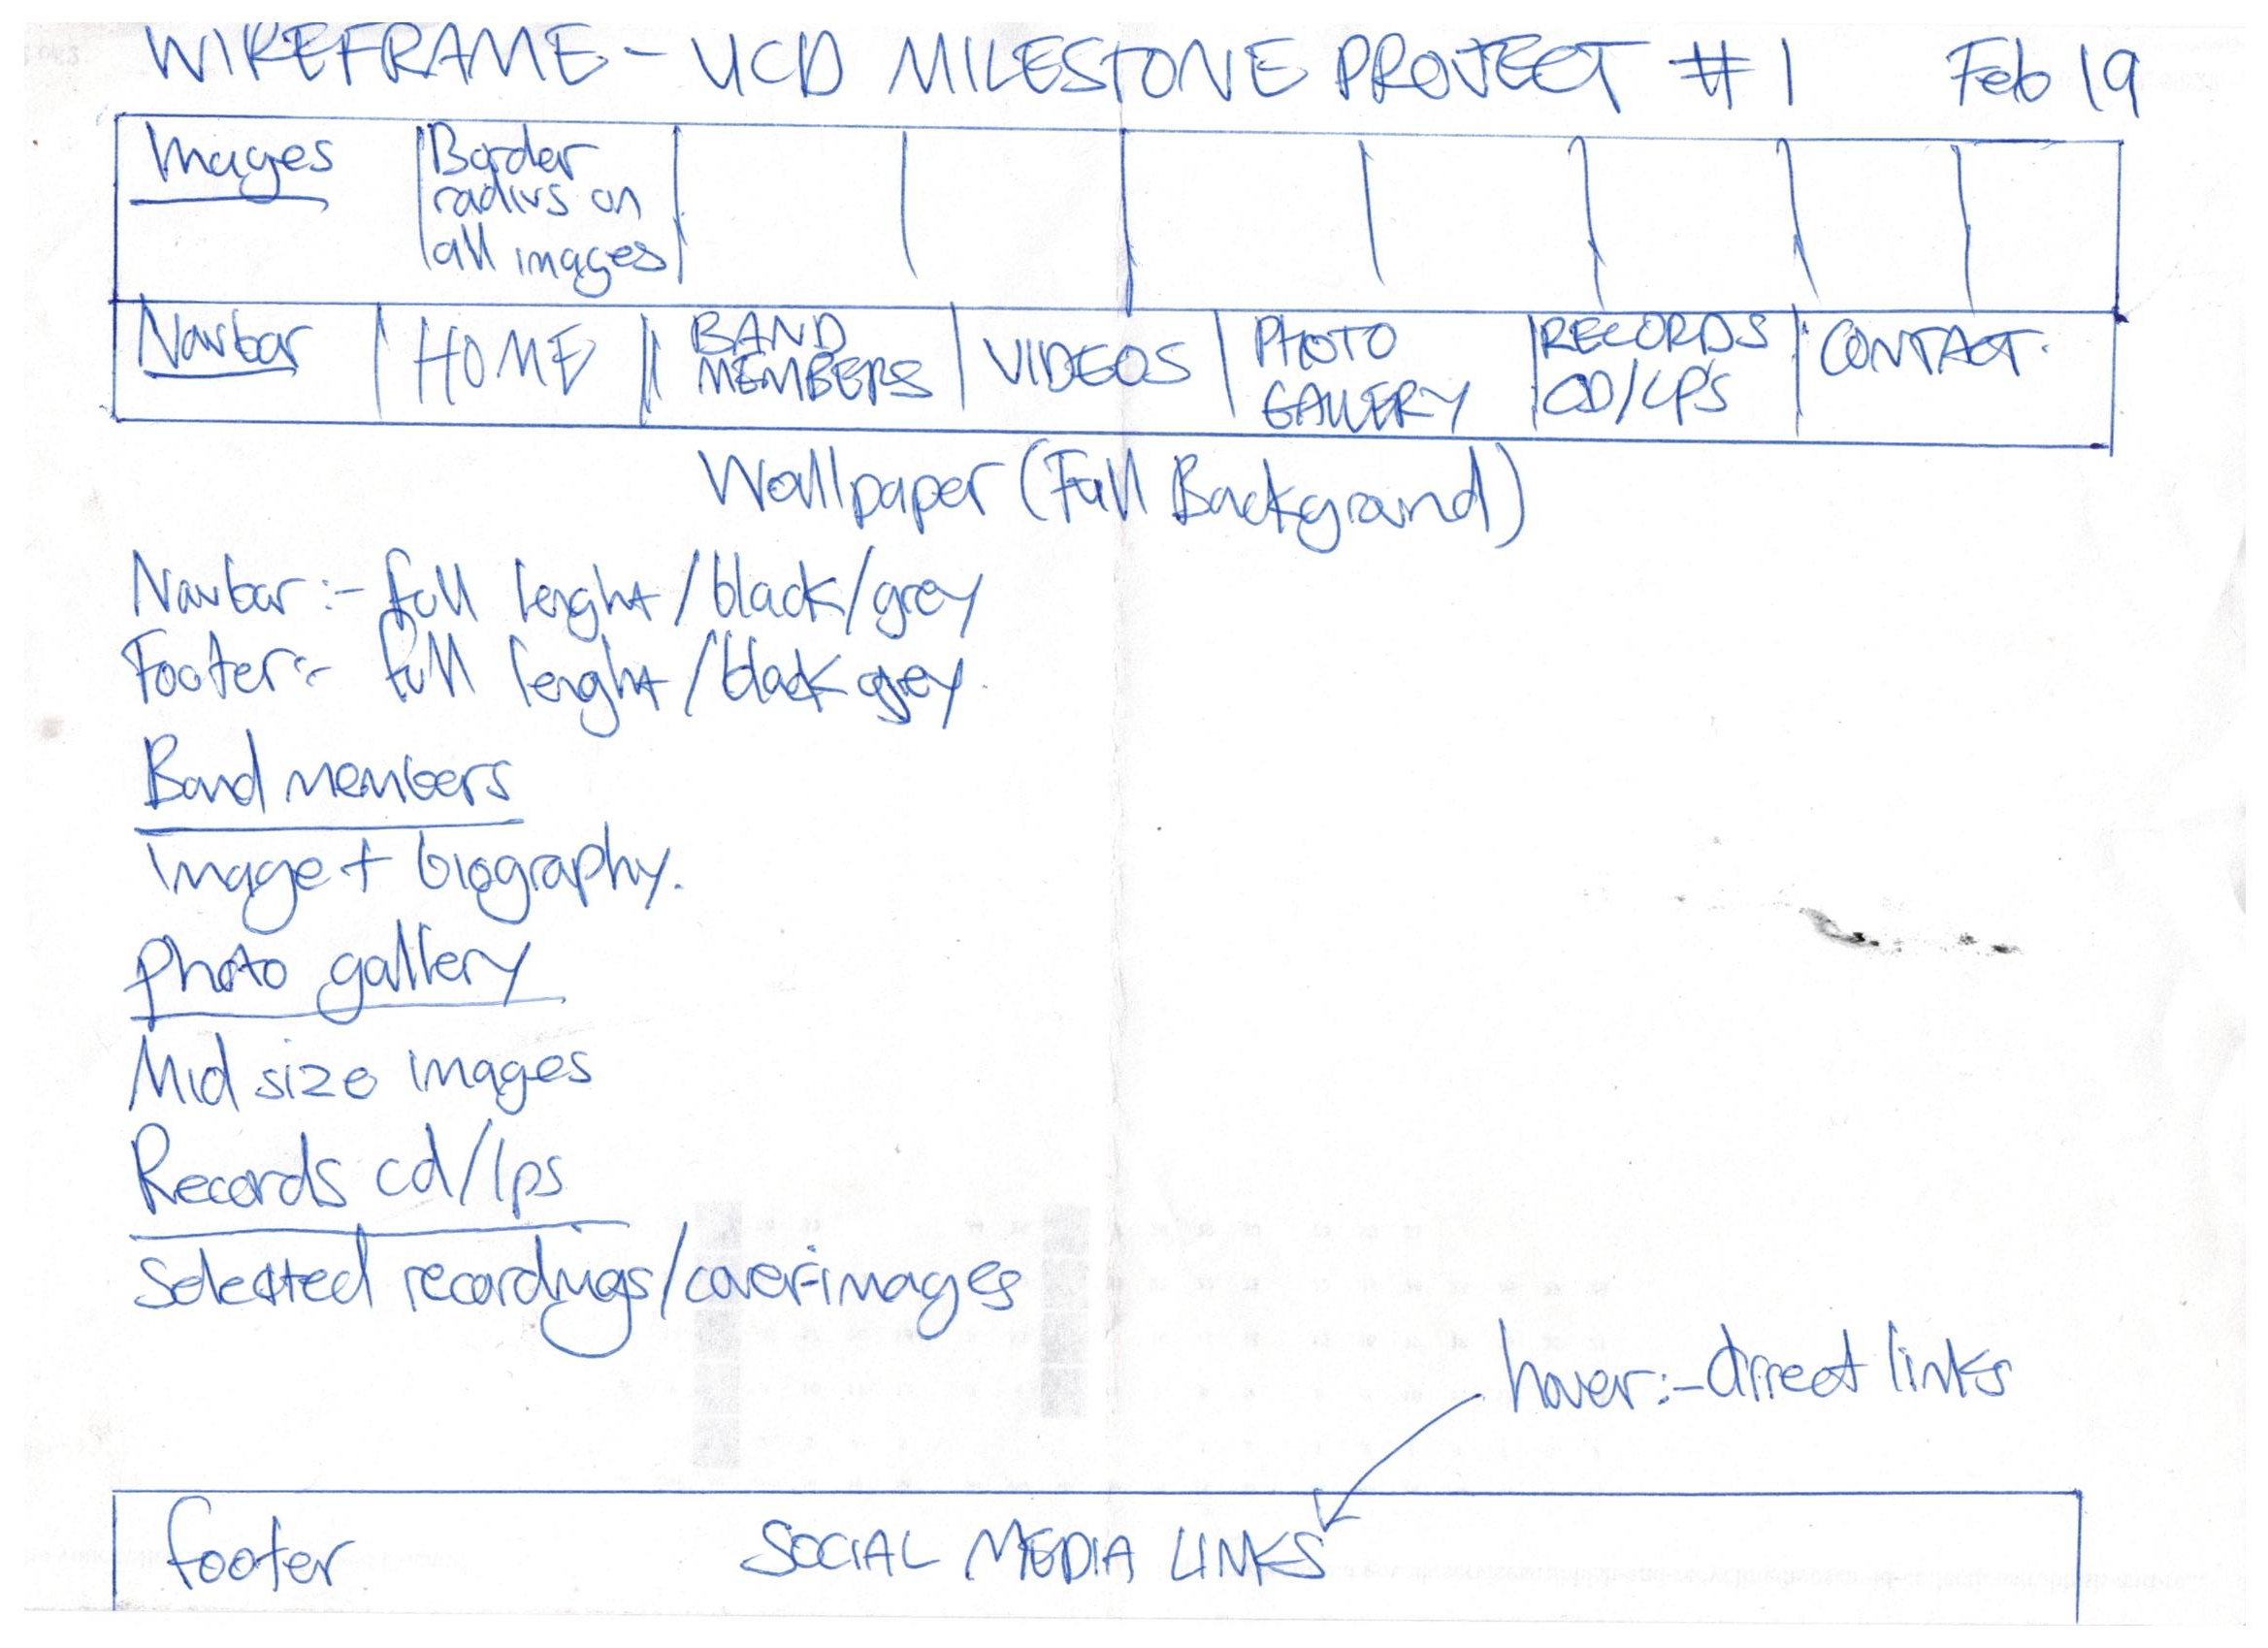 WIREFRAME - UCD MILESTONE PROJECT #1 Feb 19
Images
Border
radius on
all images
Navbar
HOME
BAND
MEMBERS
VIDEOS
PHOTO
GALLERY
RECORDS
CD/LP'S
CONTACT.
Wallpaper (Full Background)
Navbar:- full lenght/black/grey
Footer:- full lenght/black grey.
Band members
Image + biography.
photo gallery
Mid size images
Records cd/lps
Selected recordings/cover-images
hover:- direct links
footer
SOCIAL MEDIA LINKS